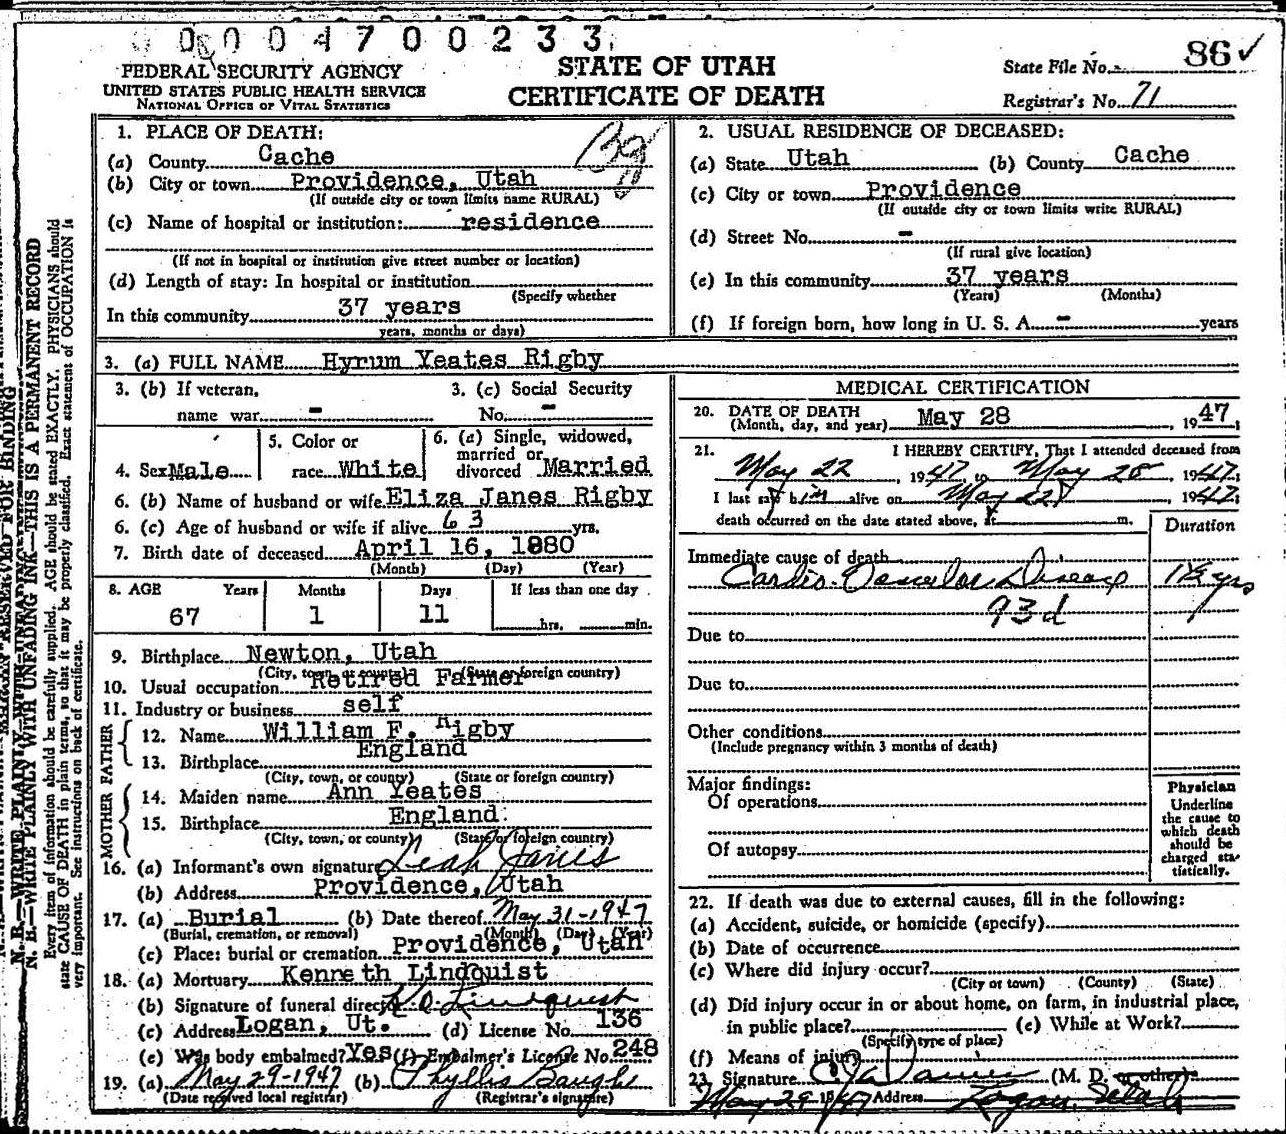 0 0 0 0 4 7 0 0 2 3 3
FEDERAL SECURITY AGENCY
UNITED STATES PUBLIC HEALTH SERVICE
NATIONAL OFFICE OF VITAL STATISTICS
STATE OF UTAH
CERTIFICATE OF DEATH
State File No. 86 ✓
Registrar's No. 71
1. PLACE OF DEATH:
(a) County Cache
(b) City or town Providence, Utah
(If outside city or town limits name RURAL)
(c) Name of hospital or institution: residence
(If not in hospital or institution give street number or location)
(d) Length of stay: In hospital or institution
(Specify whether
In this community 37 years
years, months or days)
2. USUAL RESIDENCE OF DECEASED:
(a) State Utah (b) County Cache
(c) City or town Providence
(If outside city or town limits write RURAL)
(d) Street No. -
(If rural give location)
(e) In this community 37 years
(Years) (Months)
(f) If foreign born, how long in U. S. A. - years
3. (a) FULL NAME Hyrum Yeates Rigby
3. (b) If veteran, 3. (c) Social Security
name war - No. -
4. Sex Male 5. Color or race White 6. (a) Single, widowed, married or divorced Married
6. (b) Name of husband or wife Eliza Janes Rigby
6. (c) Age of husband or wife if alive 63 yrs.
7. Birth date of deceased April 16, 1880
(Month) (Day) (Year)
8. AGE Years Months Days If less than one day
67 1 11 hrs. min.
9. Birthplace Newton, Utah
(City, town, or county) (State or foreign country)
10. Usual occupation Retired Farmer
11. Industry or business self
FATHER
12. Name William F. Rigby
13. Birthplace England
(City, town, or county) (State or foreign country)
MOTHER
14. Maiden name Ann Yeates
15. Birthplace England
(City, town, or county) (State or foreign country)
16. (a) Informant's own signature Leah Janes
(b) Address Providence, Utah
17. (a) Burial (b) Date thereof May 31-1947
(Burial, cremation, or removal) (Month) (Day) (Year)
(c) Place: burial or cremation Providence, Utah
18. (a) Mortuary Kenneth Lindquist
(b) Signature of funeral director K. O. Lindquist
(c) Address Logan, Ut. (d) License No. 136
(e) Was body embalmed? Yes (f) Embalmer's License No. 248
19. (a) May 29-1947 (b) Phyllis Baugh
(Date received local registrar) (Registrar's signature)
MEDICAL CERTIFICATION
20. DATE OF DEATH
(Month, day, and year) May 28, 1947;
21. I HEREBY CERTIFY, That I attended deceased from
May 22, 1947 to May 28, 1947;
I last saw him alive on May 28, 1947;
death occurred on the date stated above, at m.
Duration
Immediate cause of death
Cardio-Vascular Disease 1 1/2 yrs
93d
Due to
Due to
Other conditions
(Include pregnancy within 3 months of death)
Major findings:
Of operations
Of autopsy
Physician
Underline
the cause to
which death
should be
charged sta-
tistically.
22. If death was due to external causes, fill in the following:
(a) Accident, suicide, or homicide (specify)
(b) Date of occurrence
(c) Where did injury occur?
(City or town) (County) (State)
(d) Did injury occur in or about home, on farm, in industrial place,
in public place? (e) While at Work?
(Specify type of place)
(f) Means of injury
23. Signature (M. D. or other)
May 29 1947 Address Logan, Utah
N. B.—WRITE PLAINLY WITH UNFADING INK—THIS IS A PERMANENT RECORD
Every item of information should be carefully supplied. AGE should be stated EXACTLY. PHYSICIANS should
state CAUSE OF DEATH in plain terms, so that it may be properly classified. Exact statement of OCCUPATION is
very important. See instructions on back of certificate.